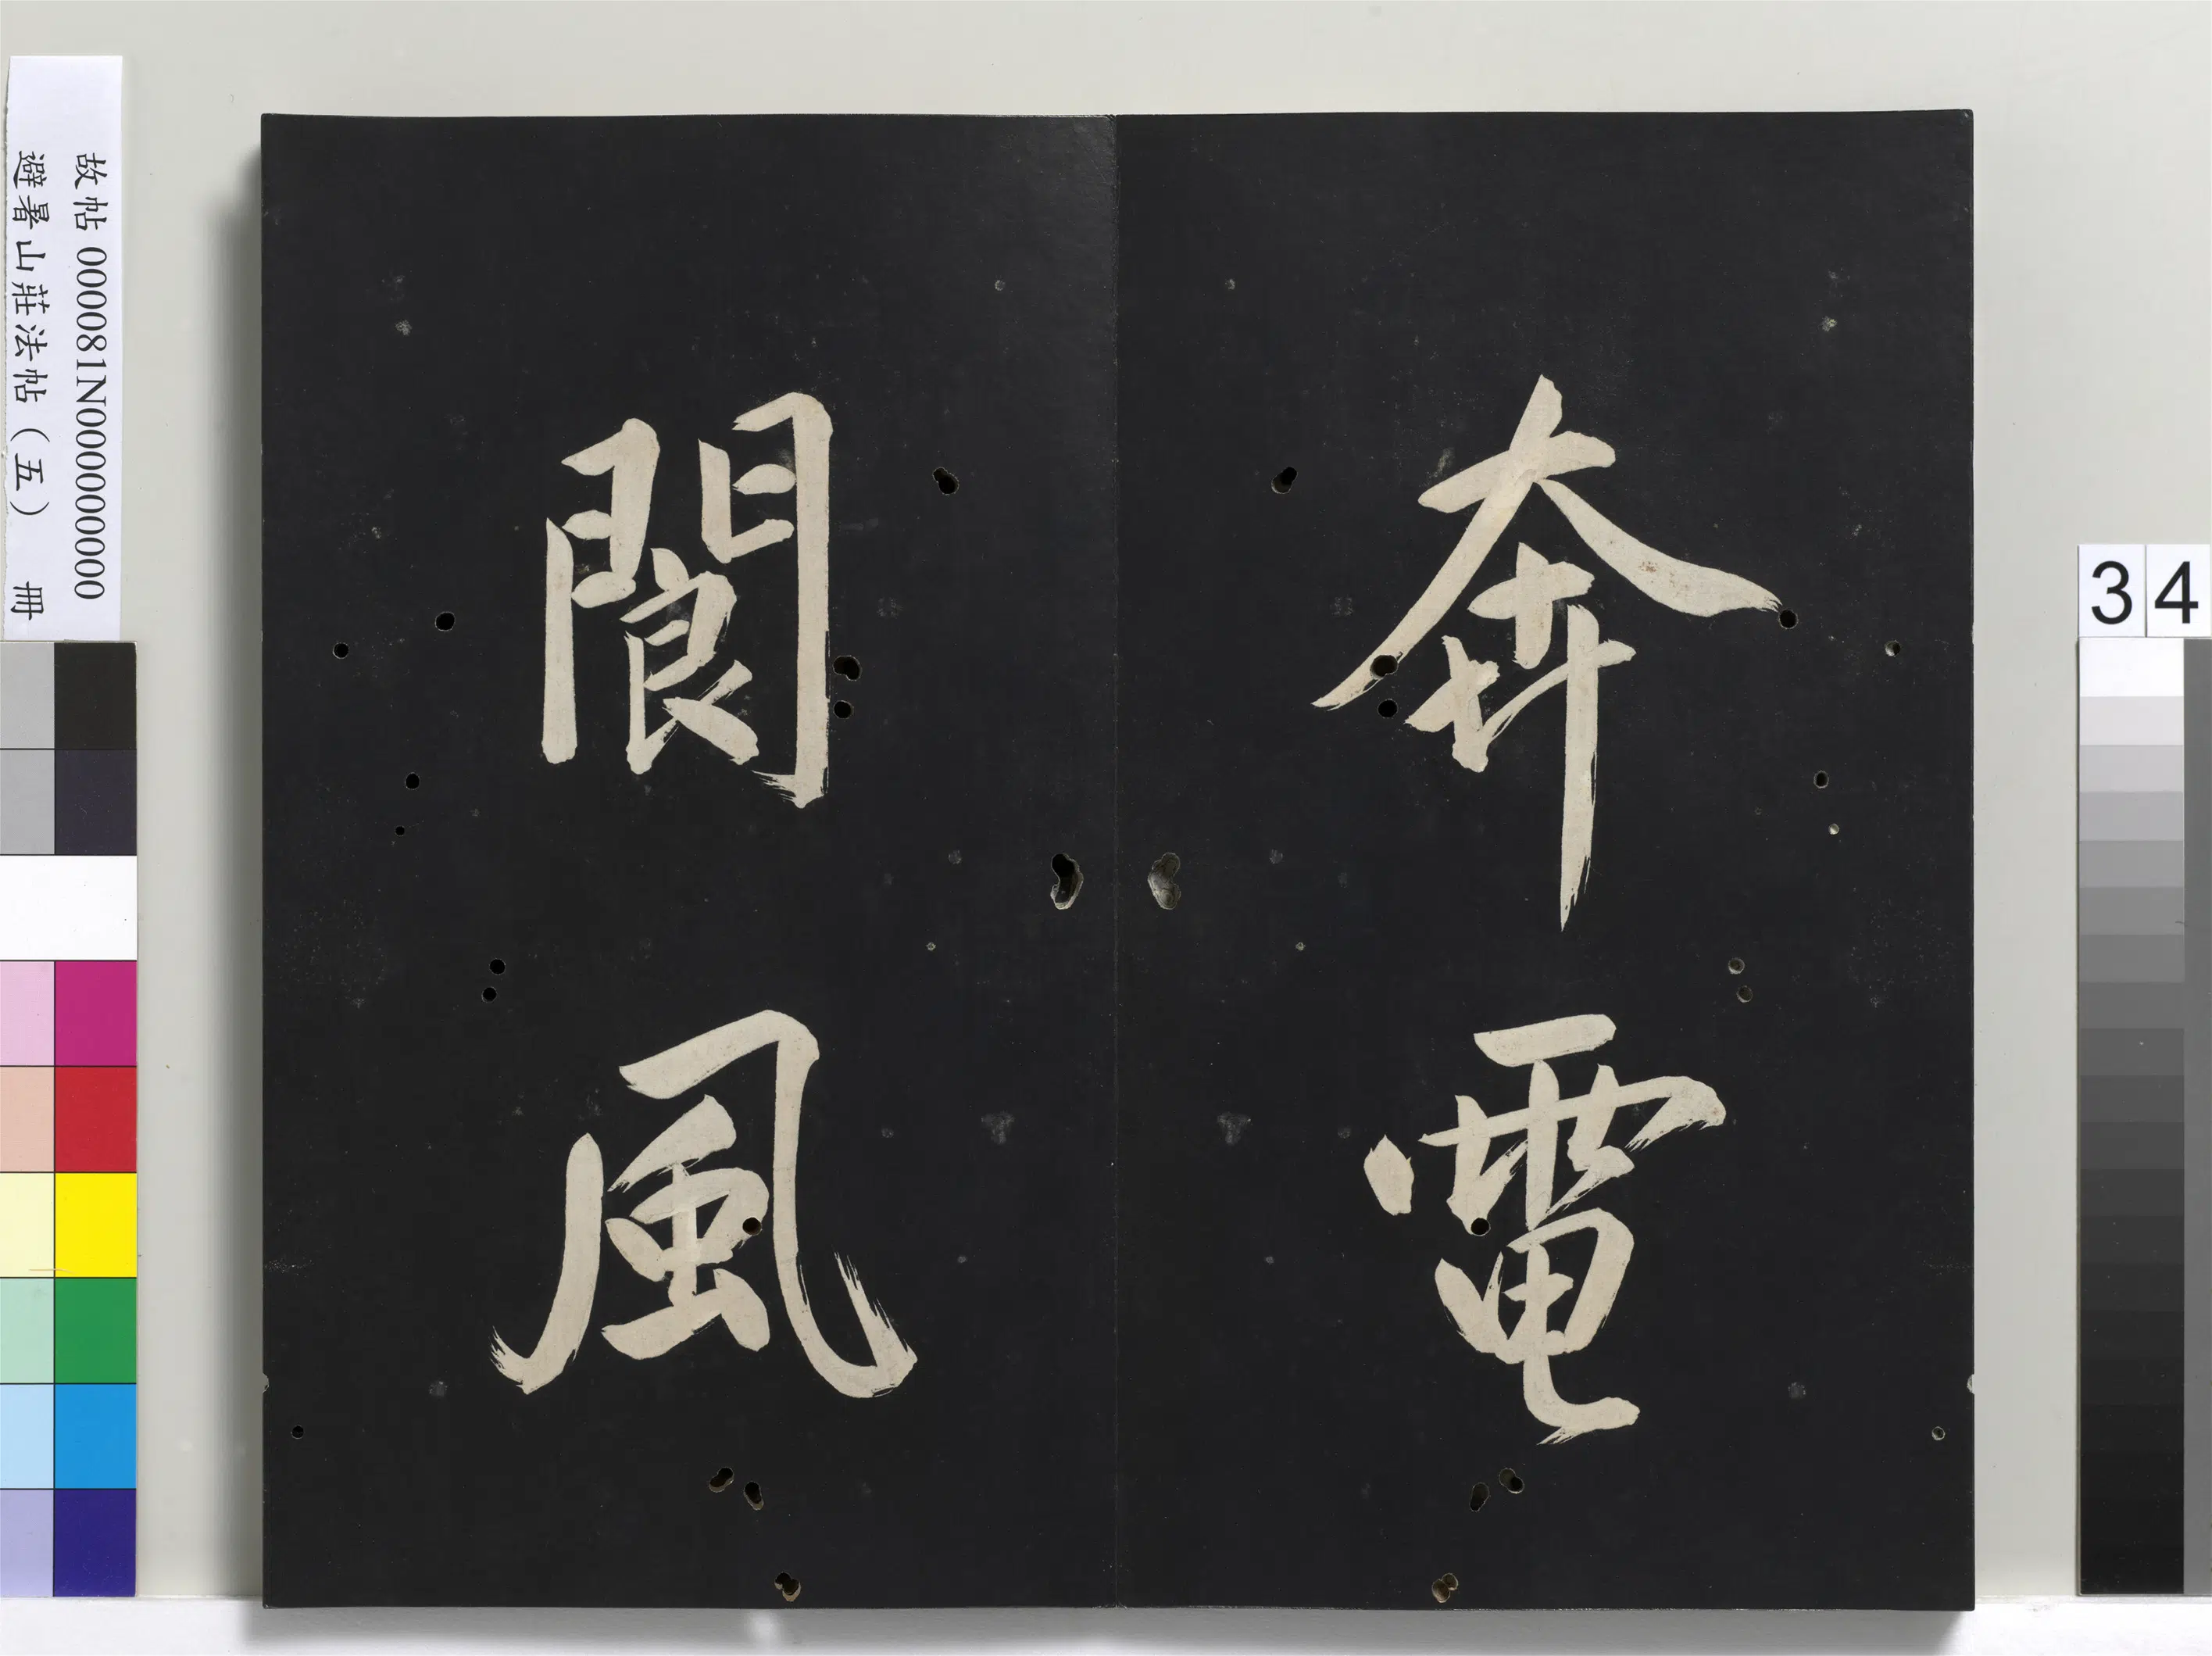 奔電
閬風
故帖 000081N000000000
避暑山莊法帖（五） 冊
34